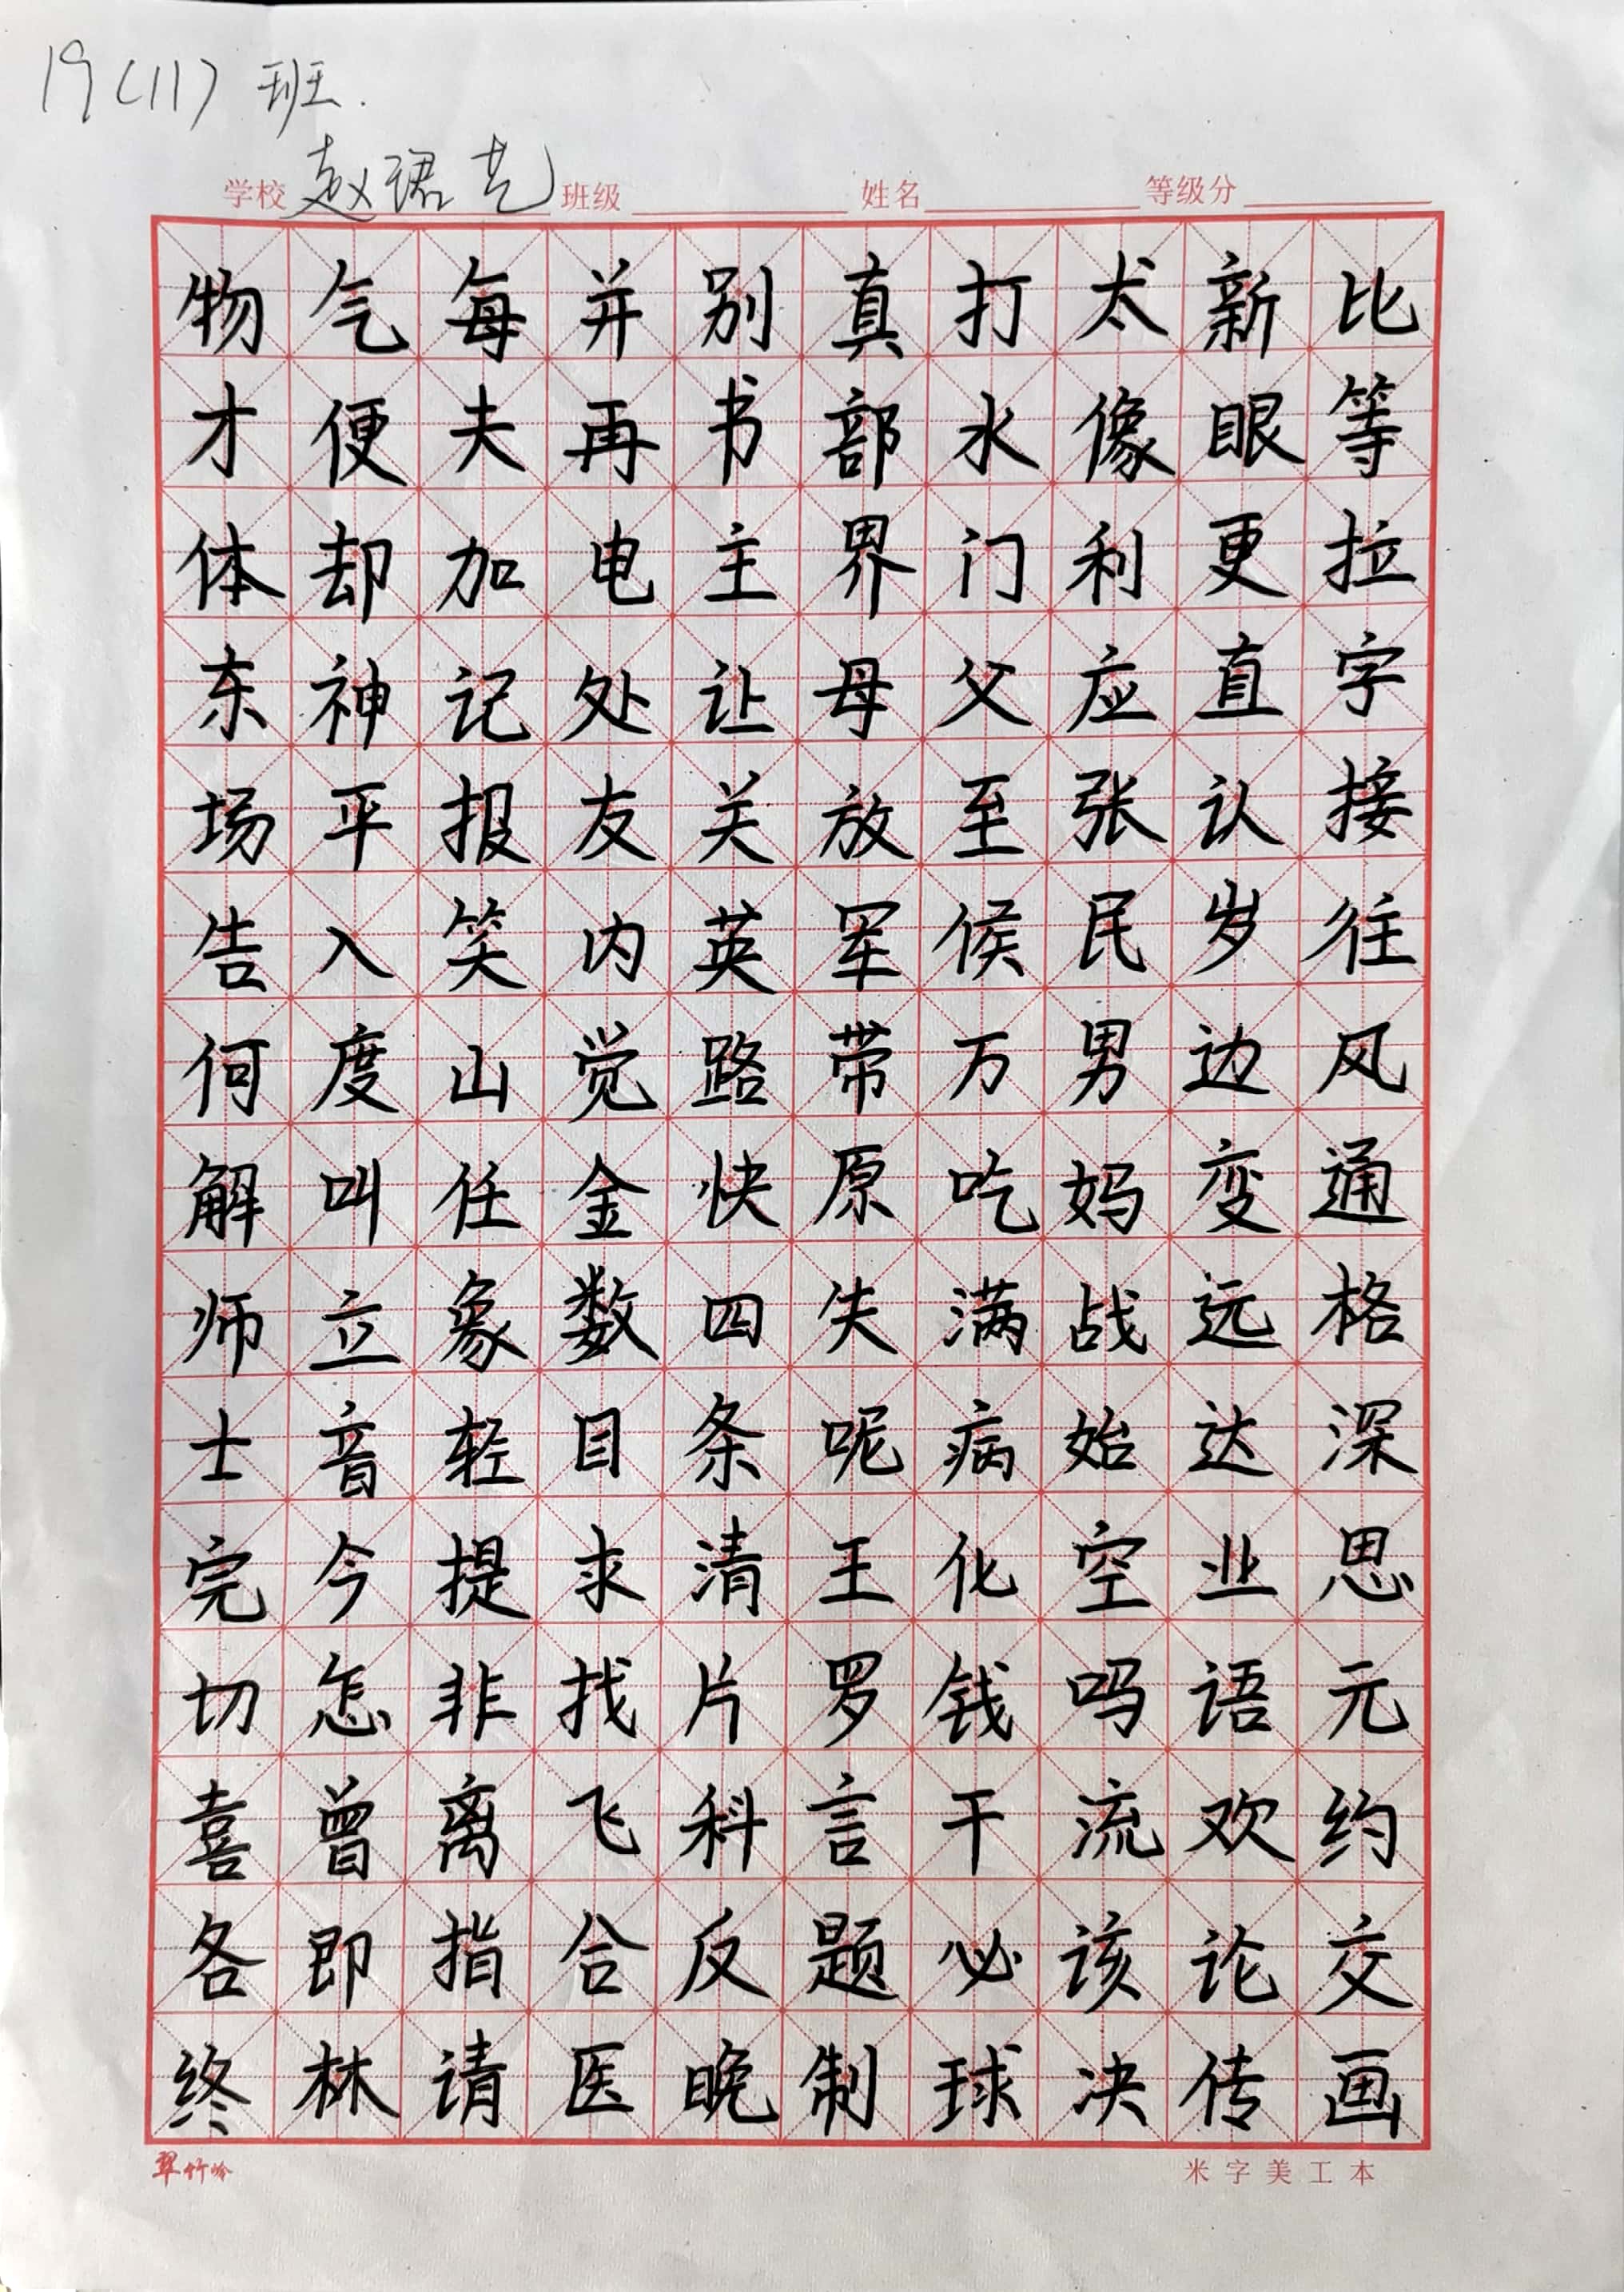 19(11)班.
赵珺艺
学校 班级 姓名 等级分
物气每并别真打太新比
才便夫再书部水像眼等
体却加电主界门利更拉
东神记处让母父应直字
场平报友关放至张认接
告入笑内英军侯民岁往
何度山觉路带万男边风
解叫任金快原吃妈变通
师立象数四失满战远格
士音轻目条呢病始达深
完今提求清王化空业思
切怎非找片罗钱吗语元
喜曾离飞科言干流欢约
各即指合反题必该论交
终林请医晚制球决传画
翠竹吟 米字美工本